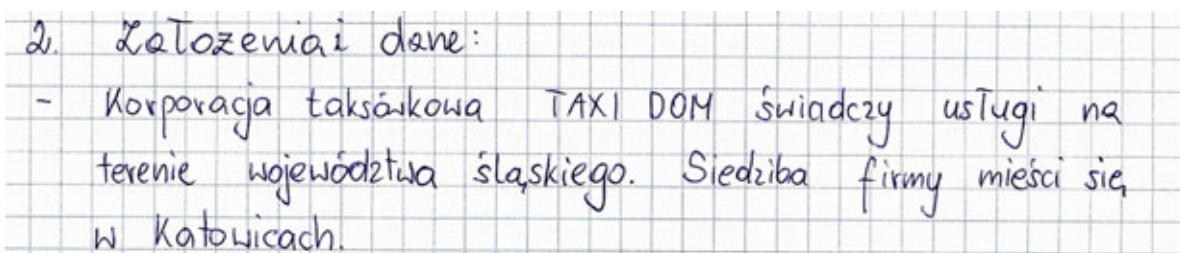 2. Założenia i dane:
- Korporacja taksówkowa TAXI DOM świadczy usługi na
terenie województwa śląskiego. Siedziba firmy mieści się
w Katowicach.